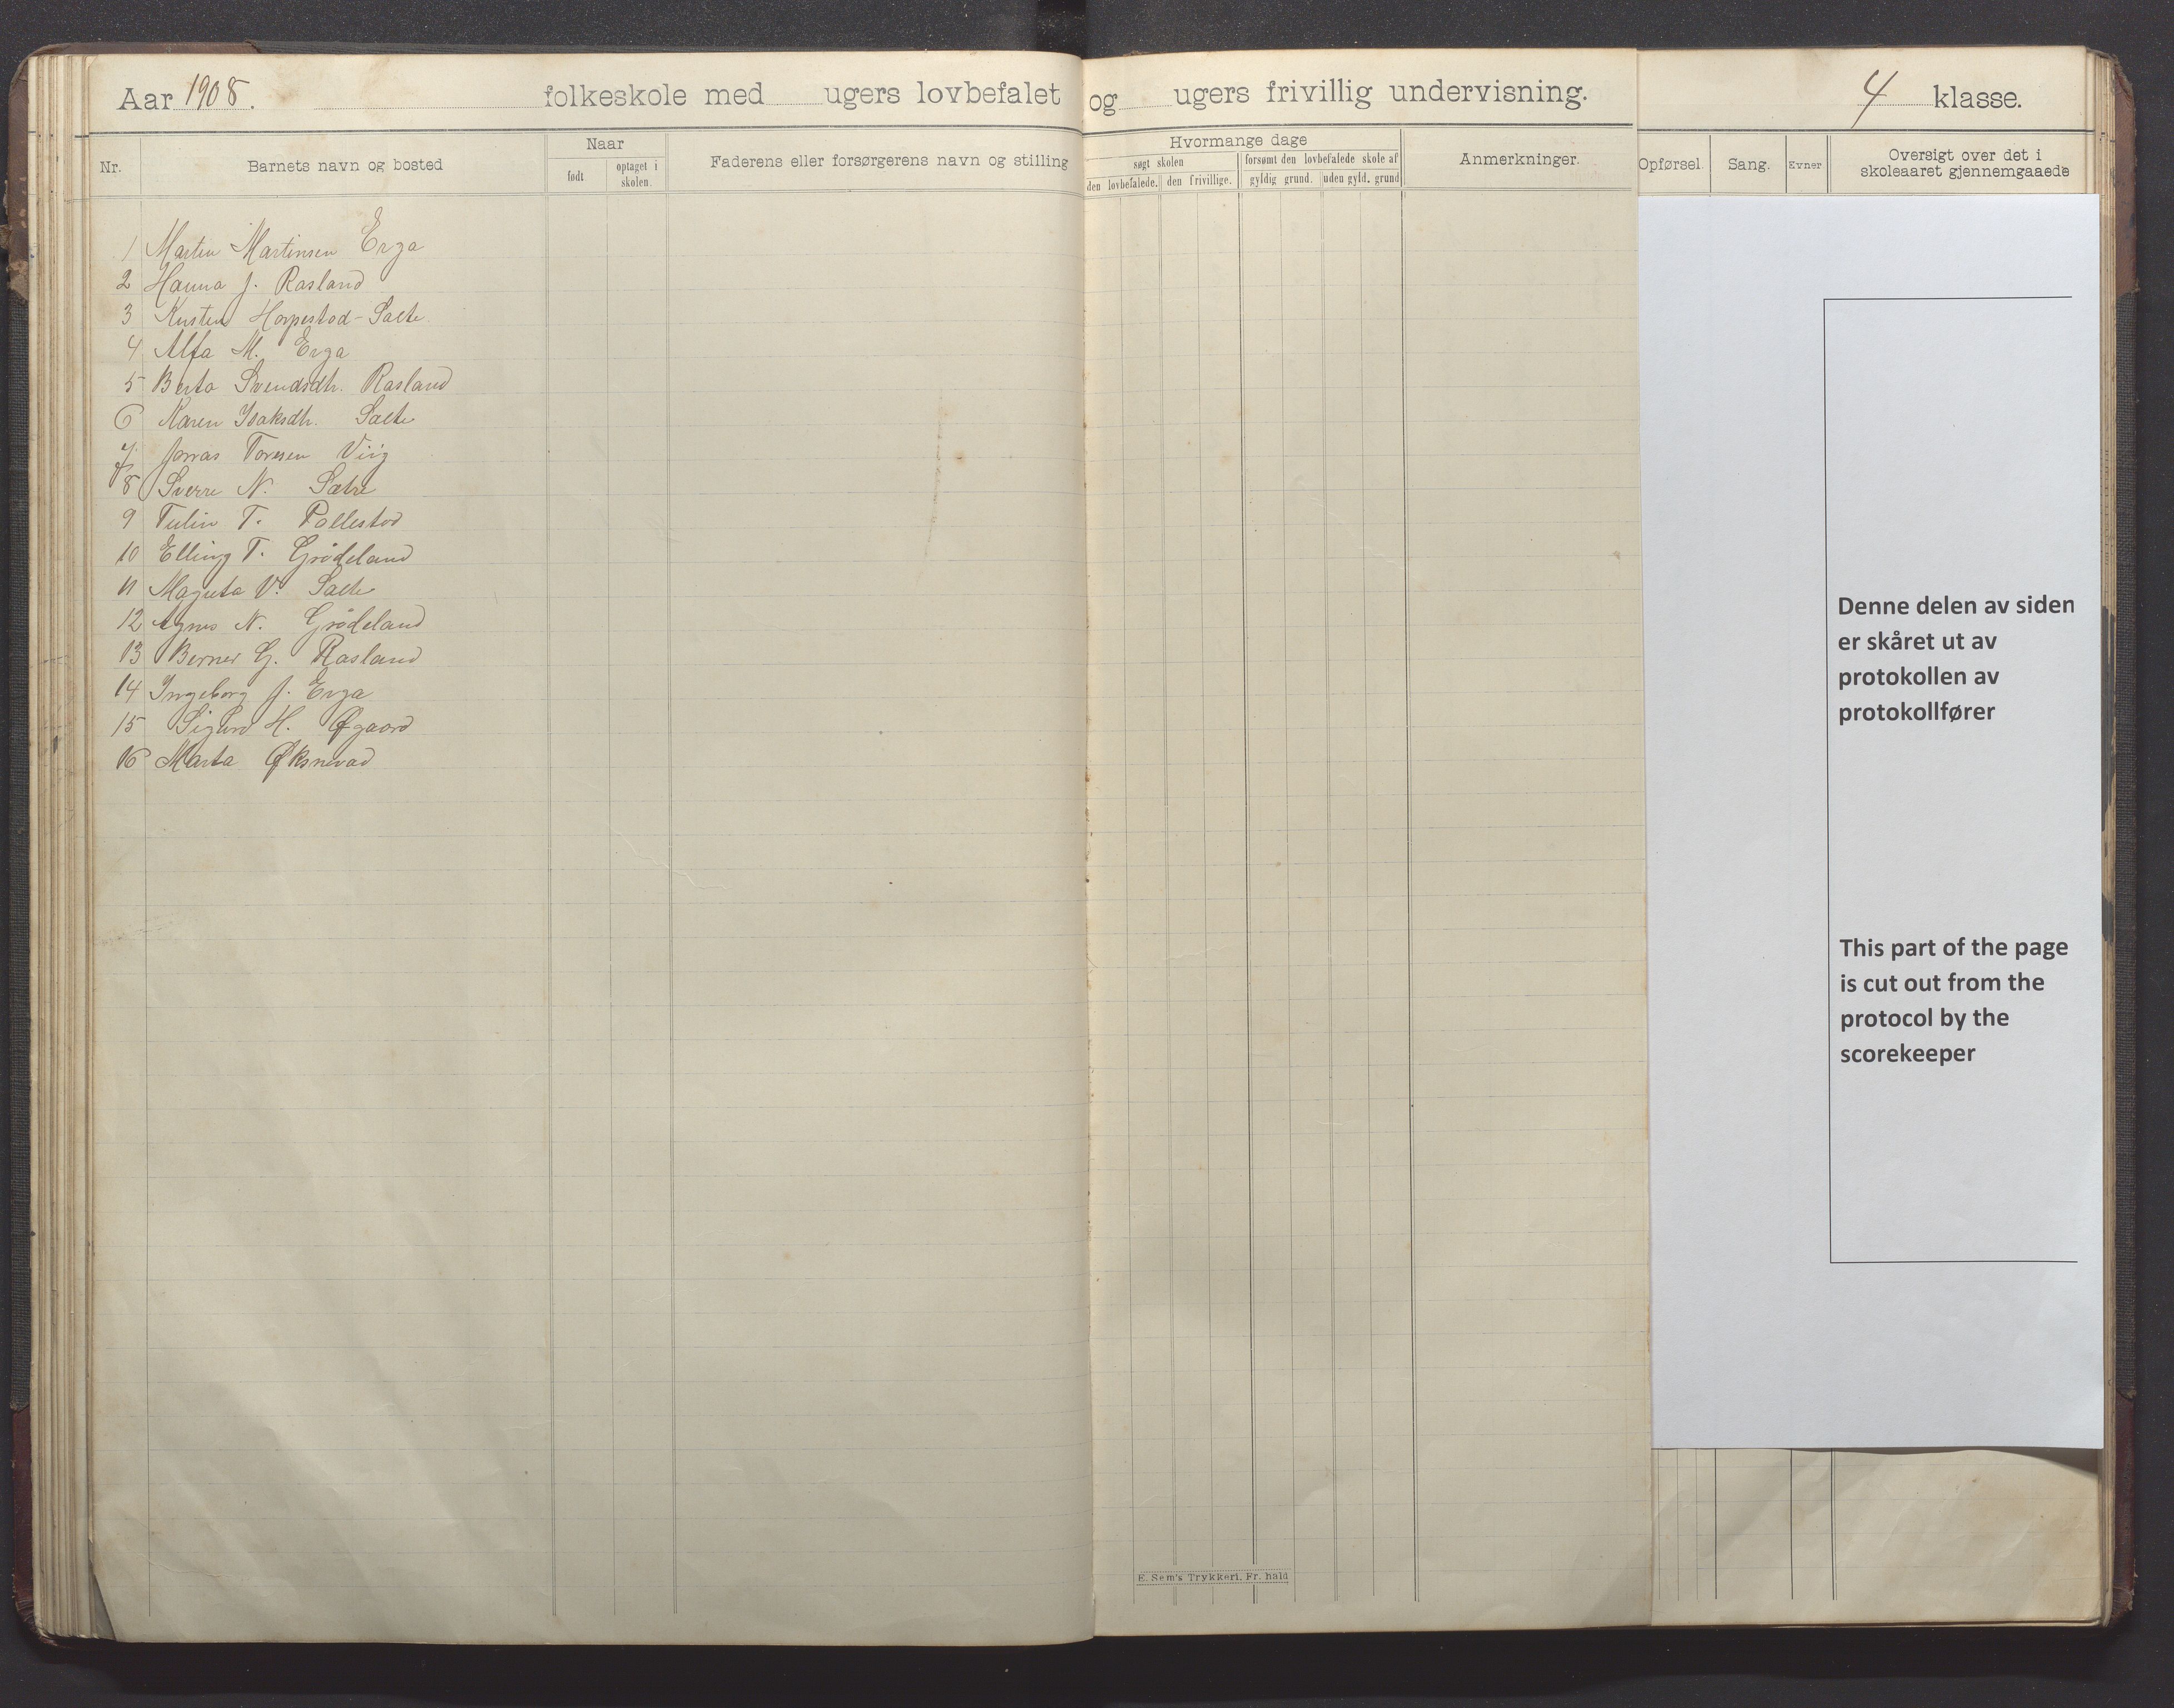 Aar 1908. folkeskole med ugers lovbefalet og ugers frivillig undervisning. 4 klasse.
Nr.
Barnets navn og bosted
Naar
født
optaget i skolen.
Faderens eller forsørgerens navn og stilling
Hvormange dage
søgt skolen
den lovbefalede.
den frivillige.
forsømt den lovbefalede skole af
gyldig grund.
uden gyld. grund
Anmerkninger.
Opførsel.
Sang.
Evner
Oversigt over det i
skoleaaret gjennemgaaede
1 Martin Martinsen Erga
2 Hanna J. Rasland
3 Kristen Horpestad-Salte
4 Alfa M. Erga
5 Berta Svendsdtr. Rasland
6 Karen Isaksdtr. Salte
7 Jonas Toresen Viig
8 Sverre N. Sætre
9 Tulin T. Pollestad
10 Elling T. Grødeland
11 V. Salte
12 Agnes N. Grødeland
13 Berner G. Rasland
14 Ingeborg J. Erga
15 Sigurd H. Øgaard
16 Marta Øksnevad
E. Sem's Trykkeri, Fr. hald
Denne delen av siden
er skåret ut av
protokollen av
protokollfører
This part of the page
is cut out from the
protocol by the
scorekeeper